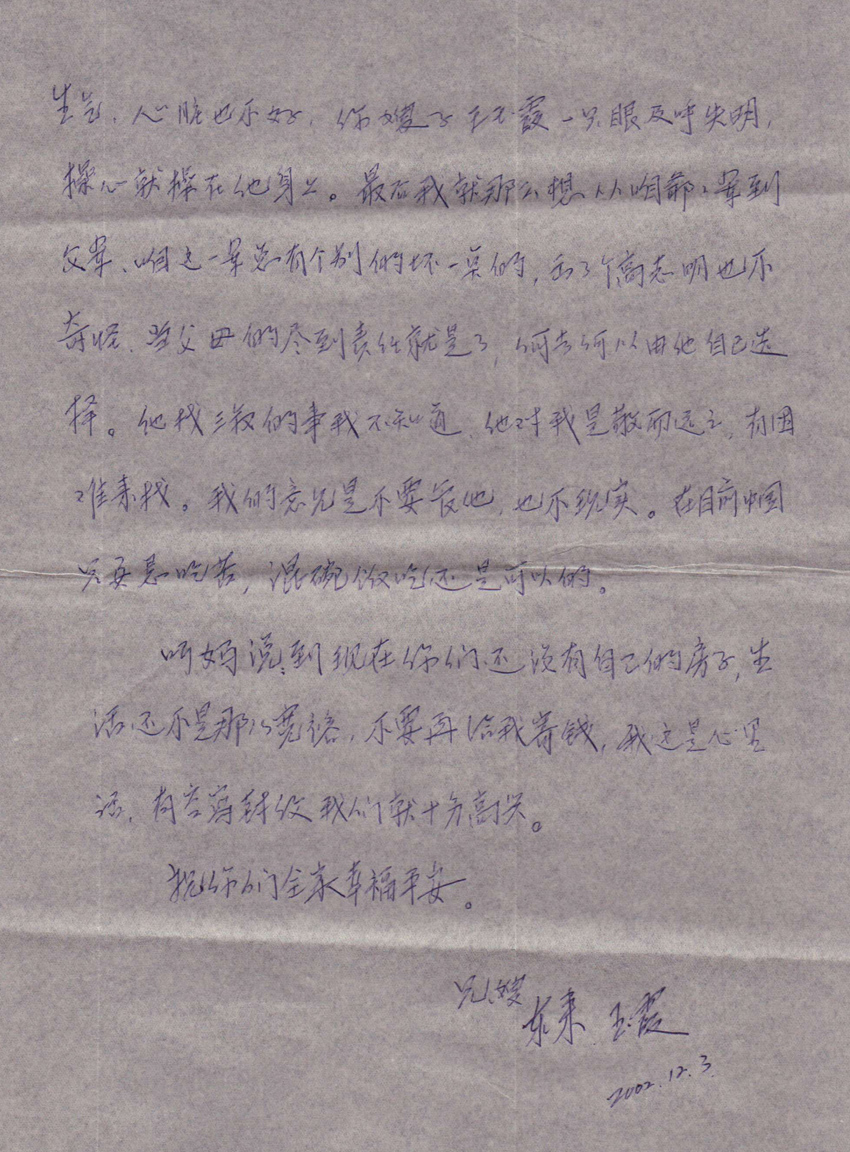 生气，心脏也不好，你嫂子王玉霞一只眼及乎失明，
操心就操在他身上。最后我就那么想从咱爷々辈到
父辈、咱这一辈总有个别的坏一点的，出了个高志明也不
奇怪，当父母的尽到责任就是了，何去何从由他自己选
择。他找三叔的事我不知道，他对我是敬而远之，有困
难来找。我的意见是不要管他，也不现实。在目前中国
只要忍吃苦，混碗饭吃还是可以的。
听妈说到现在你们还没有自己的房子，生
活还不是那么宽裕，不要再给我寄钱，我这是心里
话，有空写封信我们就十分高兴。
祝你们全家幸福平安。
兄嫂
东来 玉霞
2002.12.3.